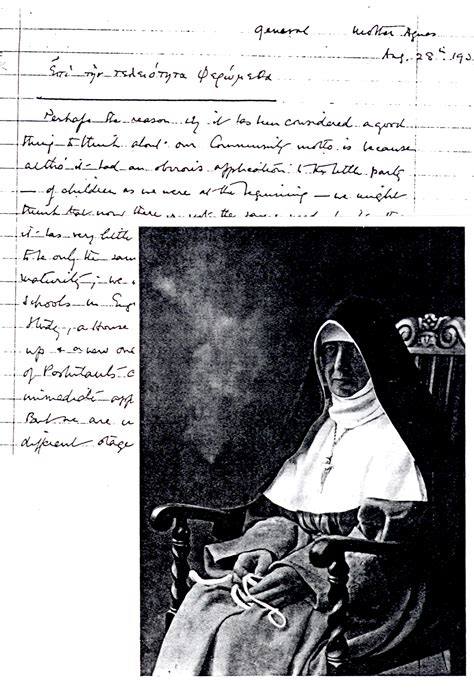 General Mother Agnes
Aug. 28th 193
Ἐπὶ τὴν τελειότητα φερώμεθα
Perhaps the reason why it has been considered a good
thing to think about our Community motto is because
altho' it had an obvious application to the little party
— of children as we were at the beginning — we might
think that now there is not the same need
it has very little
to be only the same
maturity; we
schools in Eng
Study, a House
up & a new one
of Postulants
immediate app
But we are
different stage